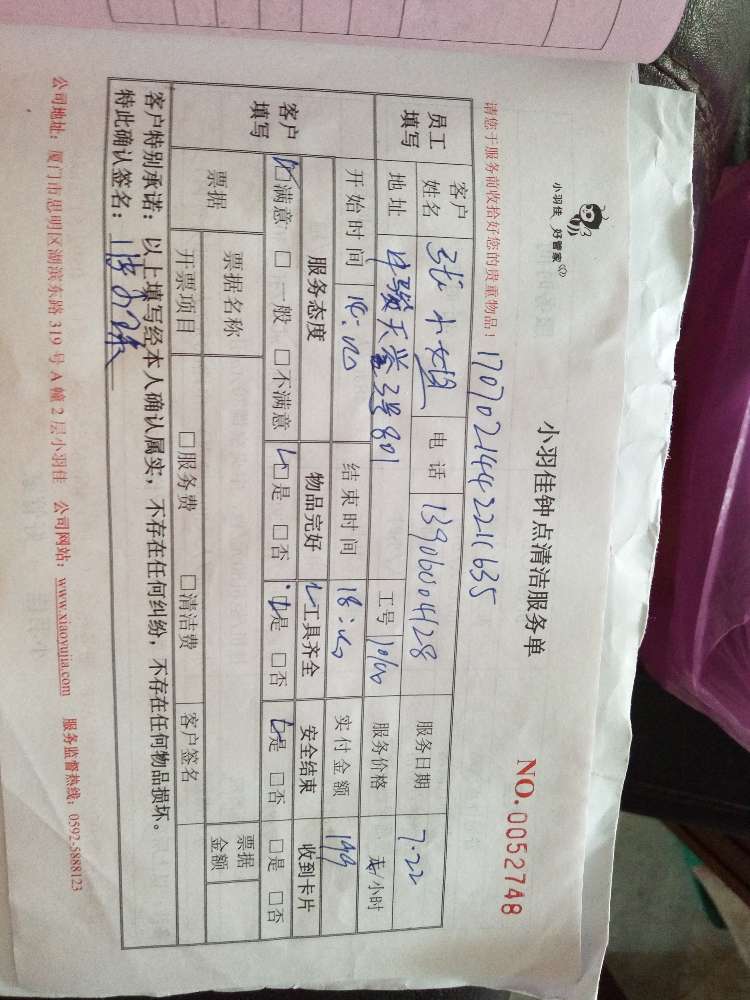 小羽佳 好管家
小羽佳钟点清洁服务单
NO.0052748
请您于服务前收拾好您的贵重物品！
17070214422211635
员工填写 客户姓名 张小姐 电话 13906004128 服务日期 7.22
地址 中骏天誉3号801 工号 服务价格 元/小时
开始时间 结束时间 实付金额 199
客户填写 服务态度 物品完好 工具齐全 安全结束 收到卡片
☑满意 □一般 □不满意 ☑是 □否 ☑是 □否 ☑是 □否 □是 □否
票据 票据名称 票据金额
开票项目 □服务费 □清洁费 客户签名
客户特别承诺：以上填写经本人确认属实，不存在任何纠纷，不存在任何物品损坏。
特此确认签名：
公司地址：厦门市思明区湖滨东路319号A幢2层小羽佳 公司网站：www.xiaoyujia.com 服务监督热线：0592-5888123